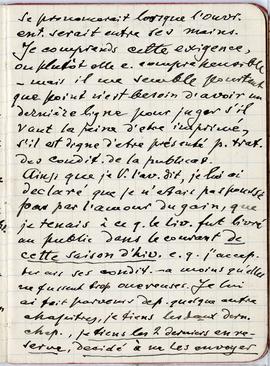 se prononcerait lorsque l'ouvr.
ent. serait entre ses mains.
Je comprends cette exigence,
ou plutôt elle e. compréhensible
– mais il me semble pourtant
que point n'est besoin d'avoir un
dernière ligne pour juger s'il
vaut la peine d'être imprimé,
s'il est digne d'être présenté p. trat.
des condit. de la publicat.
Ainsi que je l'av. dit, je lui ai
déclaré que je n'étais pas poussé
par l'amour du gain, que
je tenais à ce q. le liv. fut livré
au public dans le courant de
cette saison d'hiv. e. q. j'accep-
terais ses condit. – à moins qu'elles
ne fussent trop onéreuses. Je lui
ai fait parvenir dep. quelque autre
chapitres, je tiens les deux dern.
chap., je tiens les 2 derniers en re-
serve, décidé à ne les envoyer